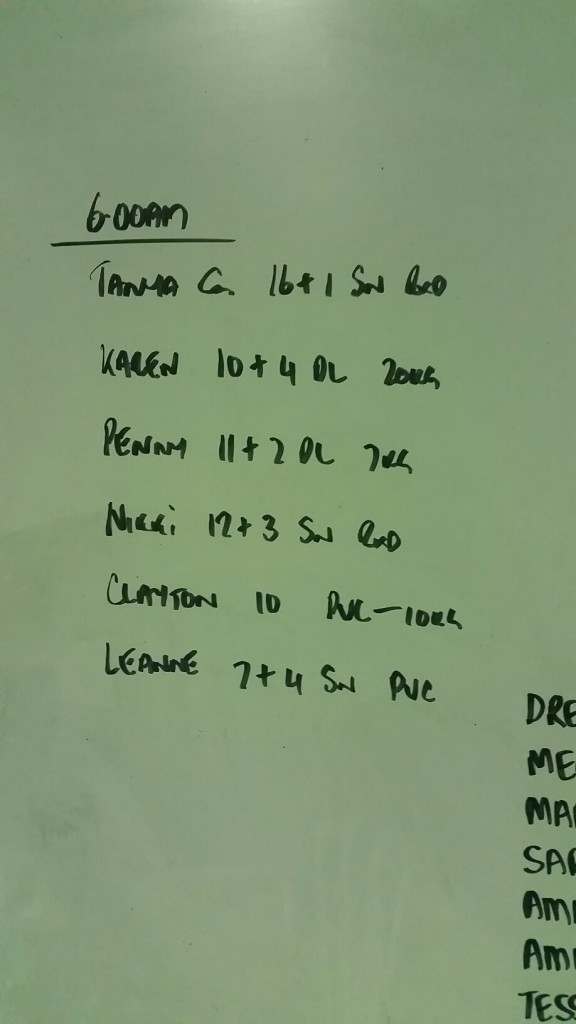 6:00AM
TANYA G. 16+1 SN RxD
KAREN 10+4 DL 20KG
PENNY 11+2 DL 7KG
NIKKI 12+3 SN RxD
CLAYTON 10 PVC-10KG
LEANNE 7+4 SN PVC
DRE
ME
MA
SAR
AM
AM
TESS